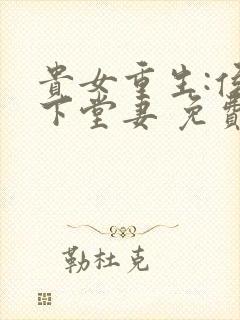 貴女重生:侯
下堂妻 免費
勒杜克